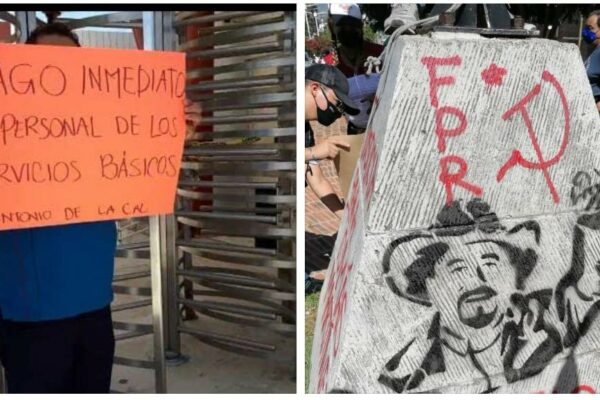 AGO INMEDIATO
PERSONAL DE LOS
RVICIOS BÁSICOS
NTONIO DE LA CAL
FPR